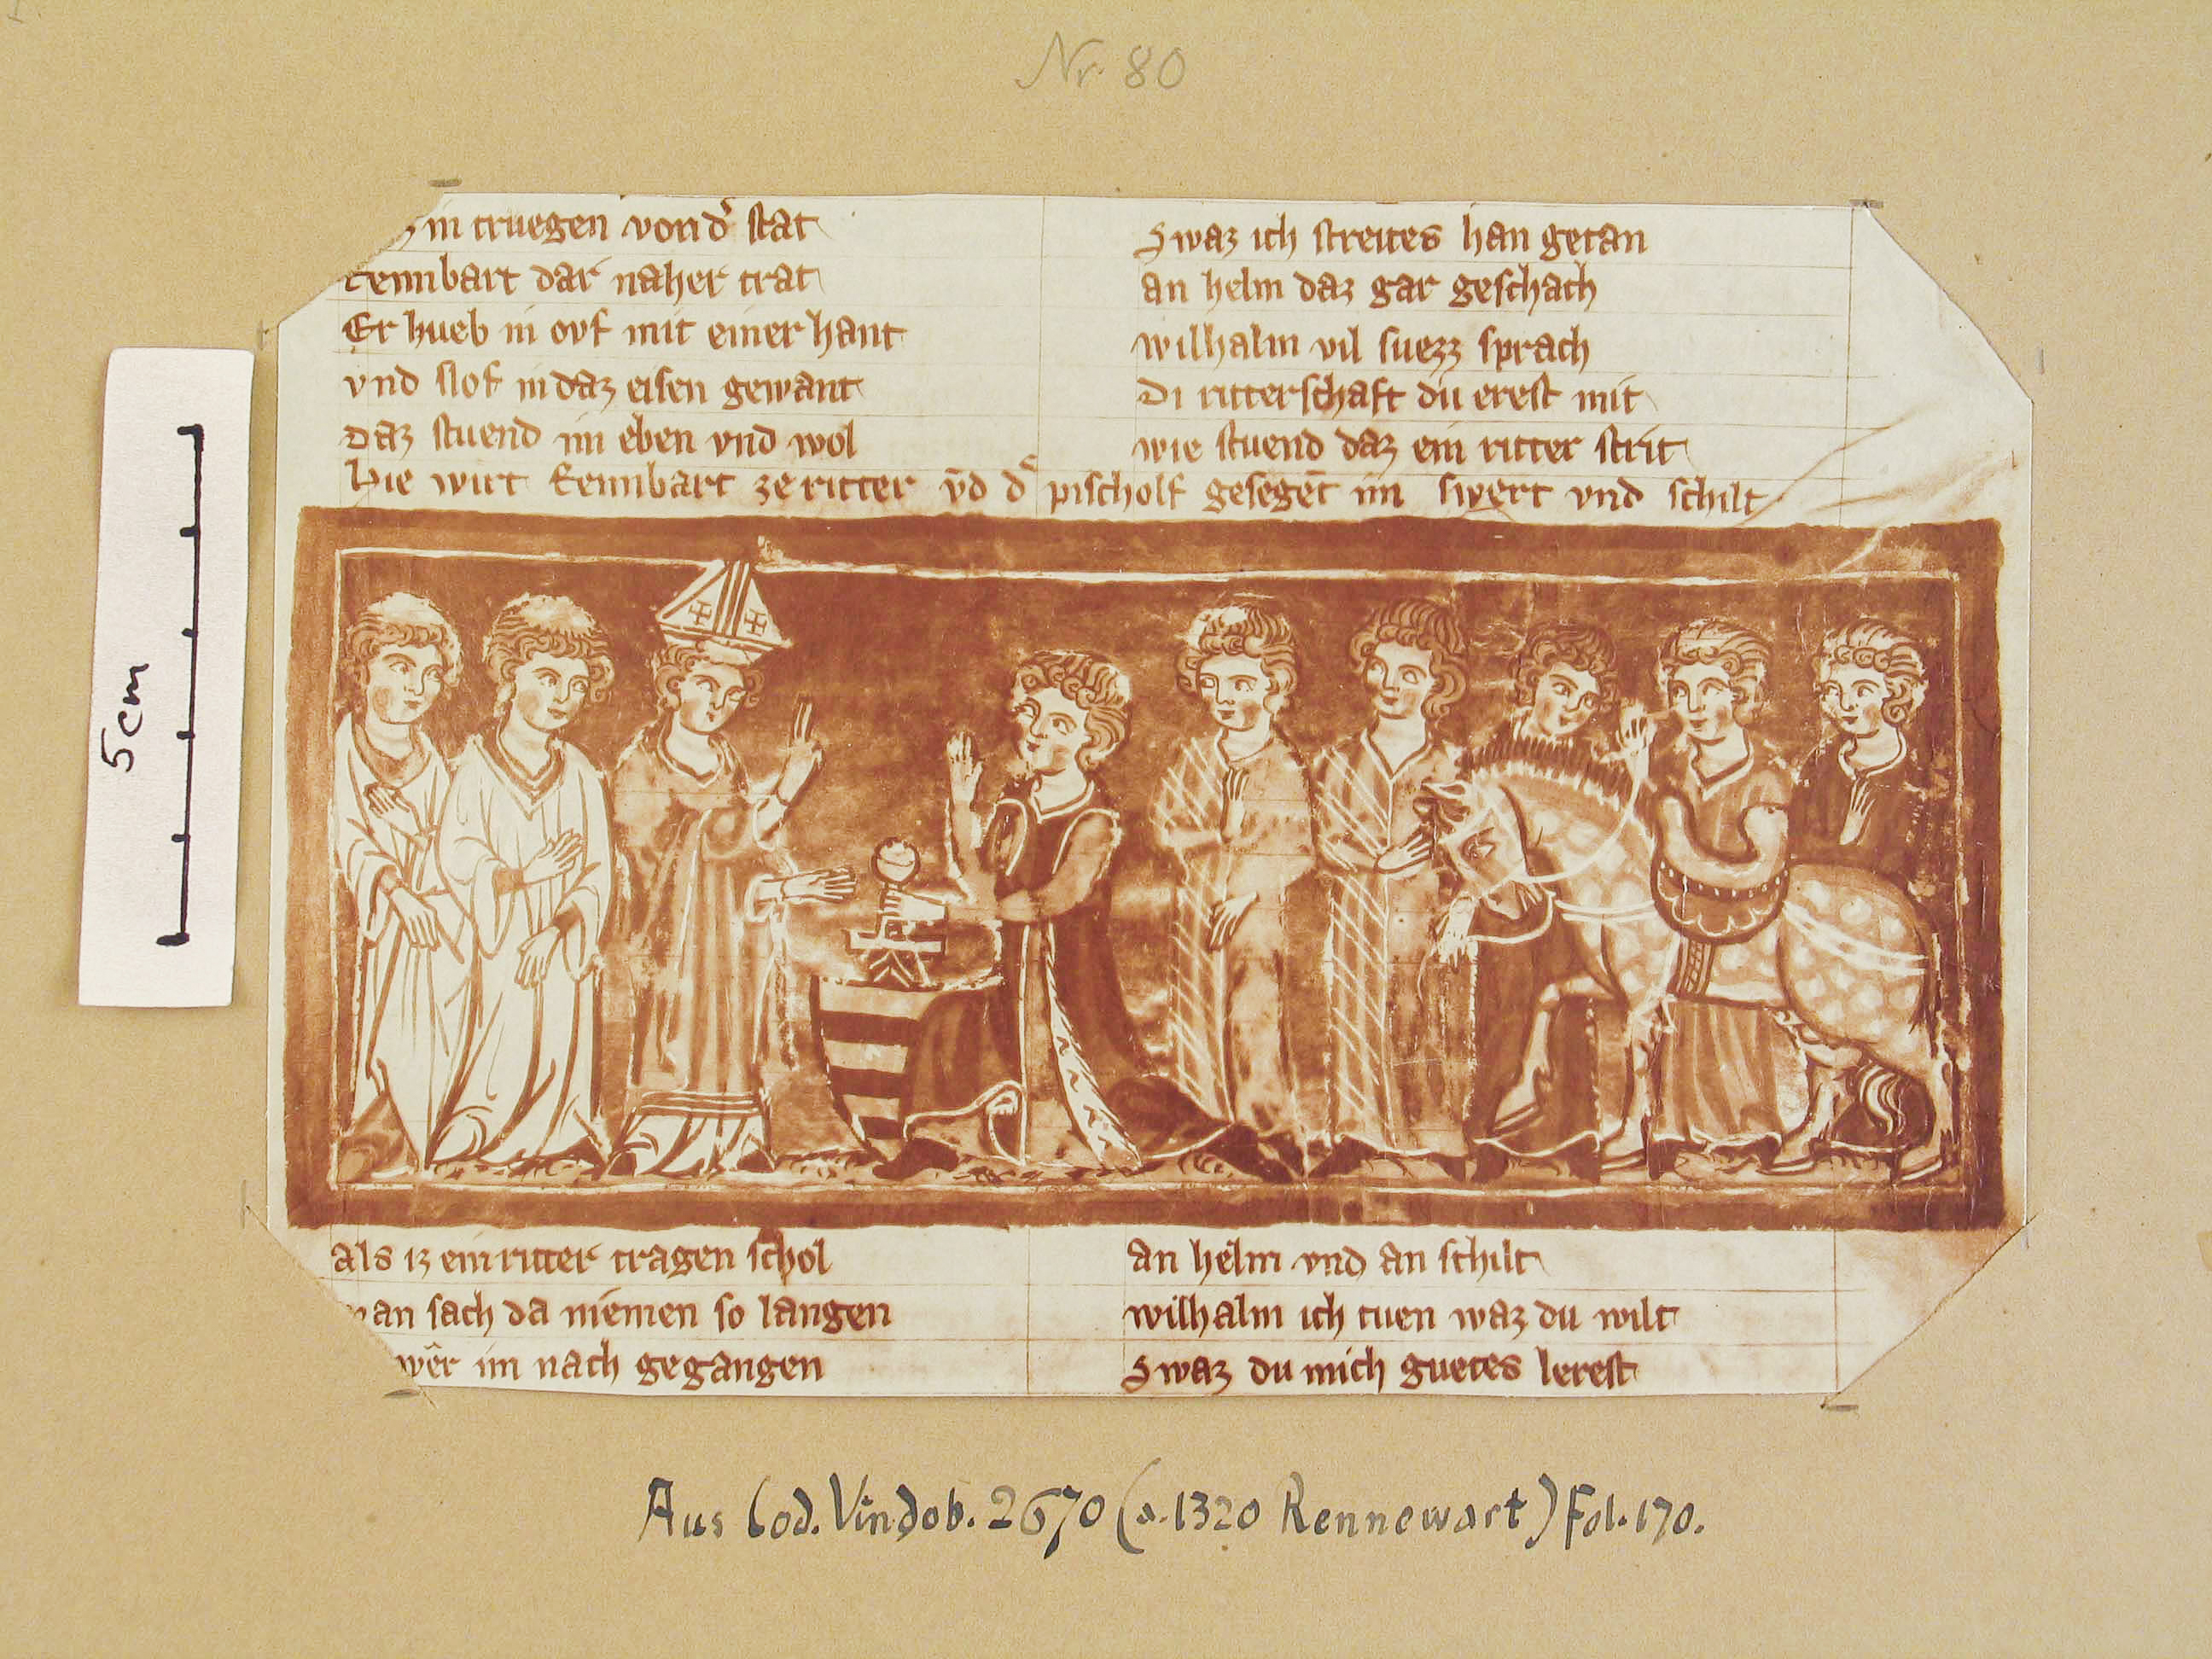 Nr. 80
in truegen von d' stat
Rennbart dar naher trat
Er hueb in ouf mit einer hant
vnd slof in daz eisen gewant
daz stuend im eben vnd wol
Swaz ich streites han getan
an helm daz gar geschach
wilhalm vil suezz sprach
Di ritterschaft du erest mit
wie stuend daz ein ritter strit
Hie wirt Rennbart ze ritter vñd d' pischolf gesegēt im swert vnd schilt
als iz ein ritter tragen schol
man sach da niemen so langen
wêr im nach gegangen
an helm vnd an schilt
wilhalm ich tuen waz du wilt
Swaz du mich guetes lerest
5 cm
Aus Cod. Vindob. 2670 (a. 1320 Rennewart) Fol. 170.